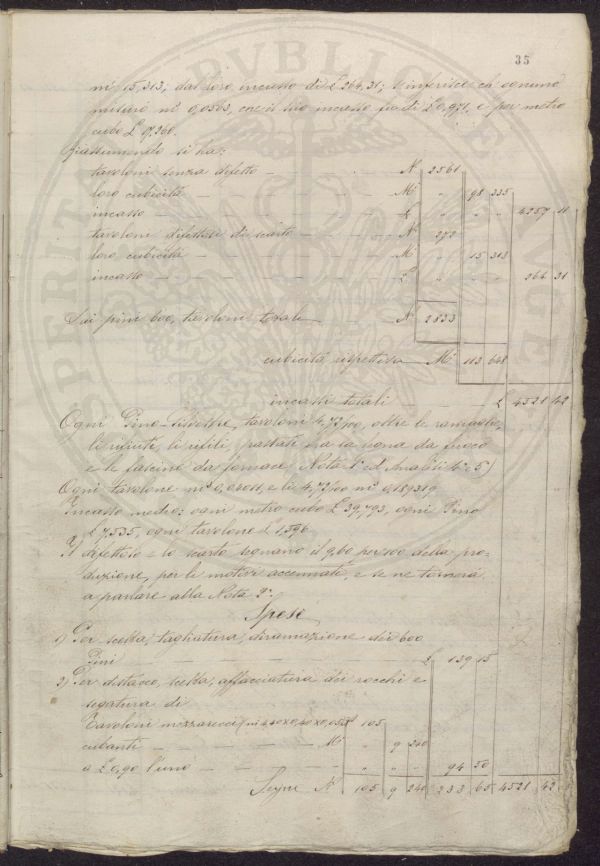 35
m³ 15,313; dal loro incasso di £ 264,31; s'inferisce ch'ognuno
misurò m³ 0,0563, che il suo incasso fu di £ 0,971, e per metro
cubo £ 17,260.
Riassumendo si ha:
tavoloni senza difetto — N. 2561
loro cubicità — M³ " 98 335
incasso — £ " " " 4257 11
tavoloni difettosi di scarto — N. 272
loro cubicità — M³ " 15 313
incasso — £ " " " 264 31
Sui pini 600, tavoloni totale — N. 2833
cubicità rispettiva — M³ 113 648
incassi totali — £ 4521 42
Ogni Pino-Silvestre, tavoloni 4,72/100, oltre le ramaglie,
li rifiuti, li rifili, passati tra la legna da fuoco
e le fascine da fornace (Nota 1ª ed Analisi 4ª. 5)
Ogni tavolone m³ 0,04011, e li 4,72/100 m³ 0,189319
Incasso medio: ogni metro cubo £ 39,793, ogni Pino
£ 7.535, ogni tavolone £ 1,596
Il difettoso e lo scarto segnano il 9,60 per 100 della pro-
duzione, per li motivi accennati, e se ne tornerà
a parlare alla Nota 2ª.
Spese
1) Per scelta, tagliatura, diramazione dei 600
Pini — £ 139 15
2) Per distacco, scelta, affacciatura dei rocchi e
segatura di
Tavoloni mezzarecci (m 4,40x0,40x0,05) N. 105
cubanti — M³ " 9 240
a £ 0,90 l'uno — " " - 94 50
Segue N. 105 9 240 233 65 4521 42